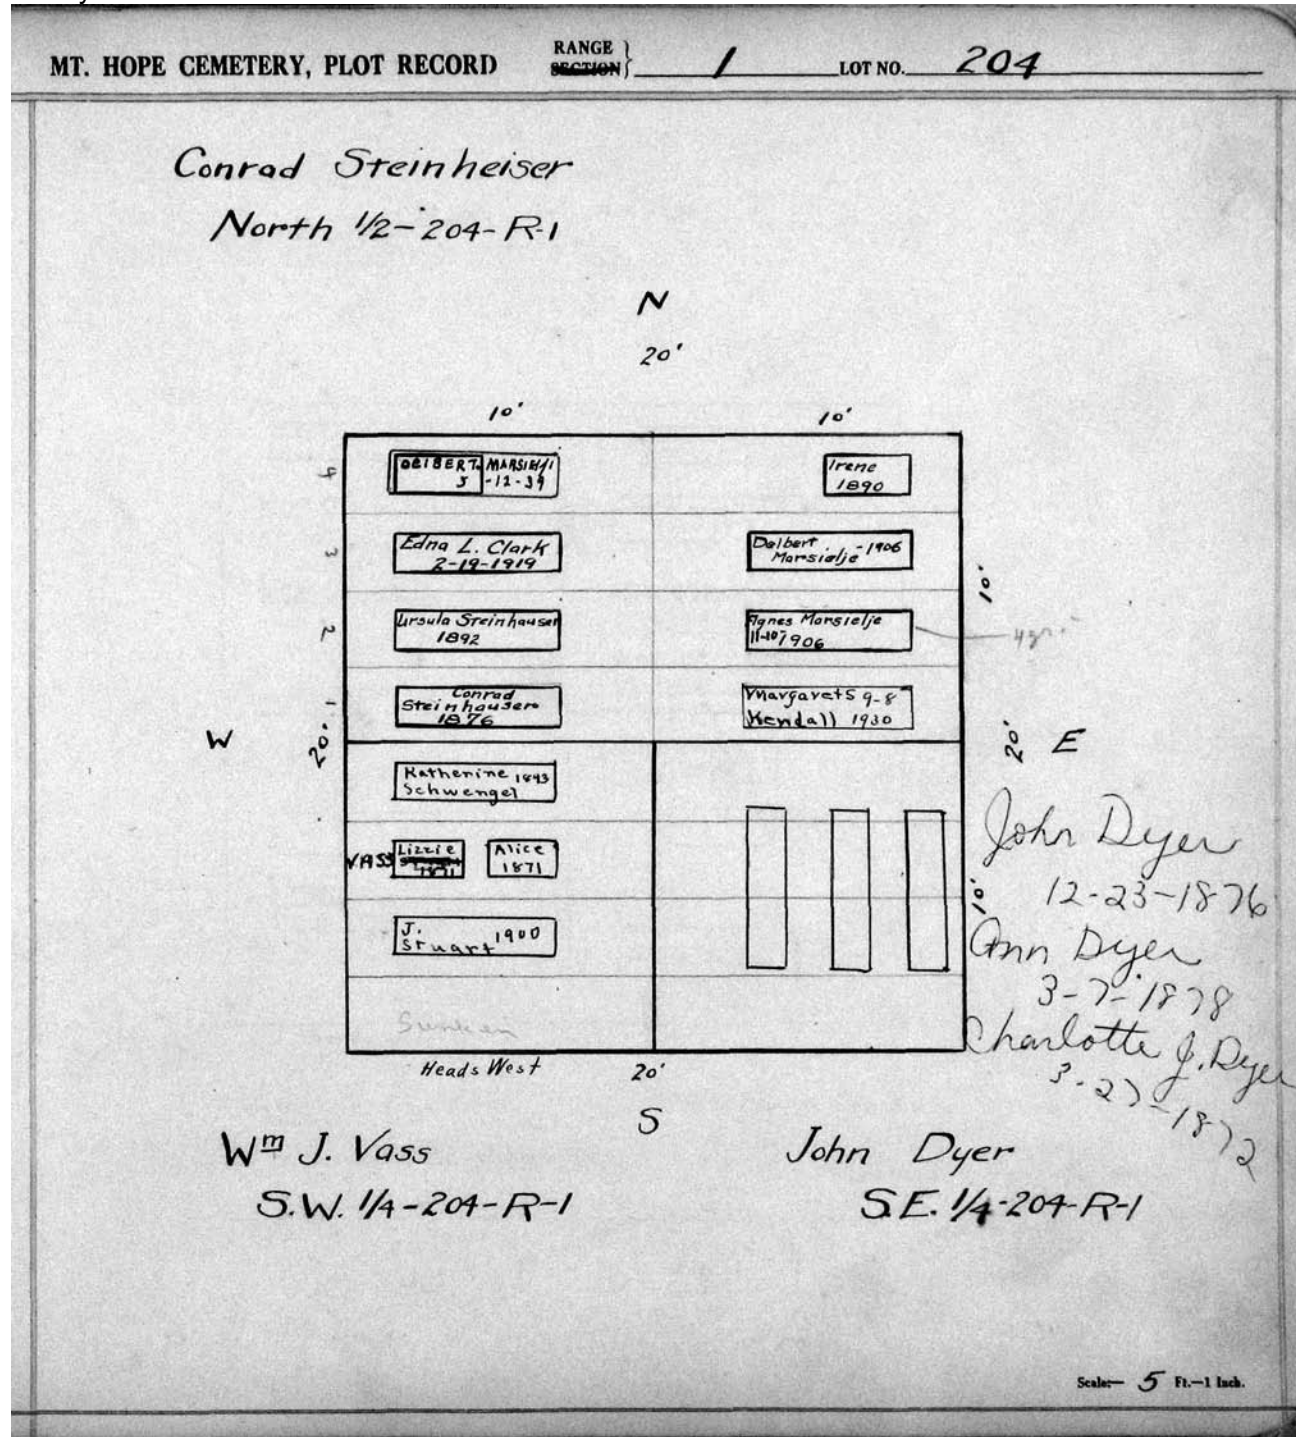 MT. HOPE CEMETERY, PLOT RECORD RANGE SECTION 1 LOT NO. 204
Conrad Steinheiser
North 1/2-204-R-1
N
20'
10' 10'
4
DELBERT J MARSILJI -12-39
Irene
1890
3
Edna L. Clark
2-19-1919
Delbert -1906
Marsielje
10'
2
Ursula Steinhauser
1892
Agnes Marsielje
11-10-1906
4gr.
1
Conrad
Steinhauser
1876
Margaret S 9-8
Kendall 1930
W
20'
20'
E
Katherine 1893
Schwengel
VASS
Lizzie
1871
Alice
1871
J.
Stuart 1900
Sunken
10'
John Dyer
12-23-1876
Ann Dyer
3-7-1878
Charlotte J. Dyer
3-27-1872
Heads West 20'
S
Wm J. Vass
S.W. 1/4-204-R-1
John Dyer
S.E. 1/4-204-R-1
Scale:— 5 Ft.—1 Inch.